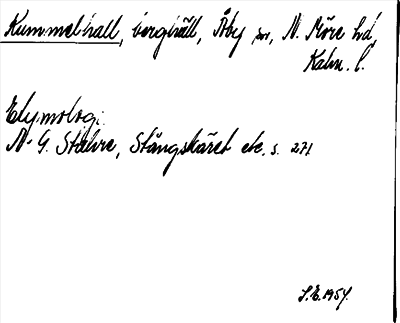 Kummelhall, berghäll, Åby sn, N. Möre hd,
Kalm. l.
Etymologi:
N. G. Stahre, Stångskäret etc. s. 271
S.E. 1954.